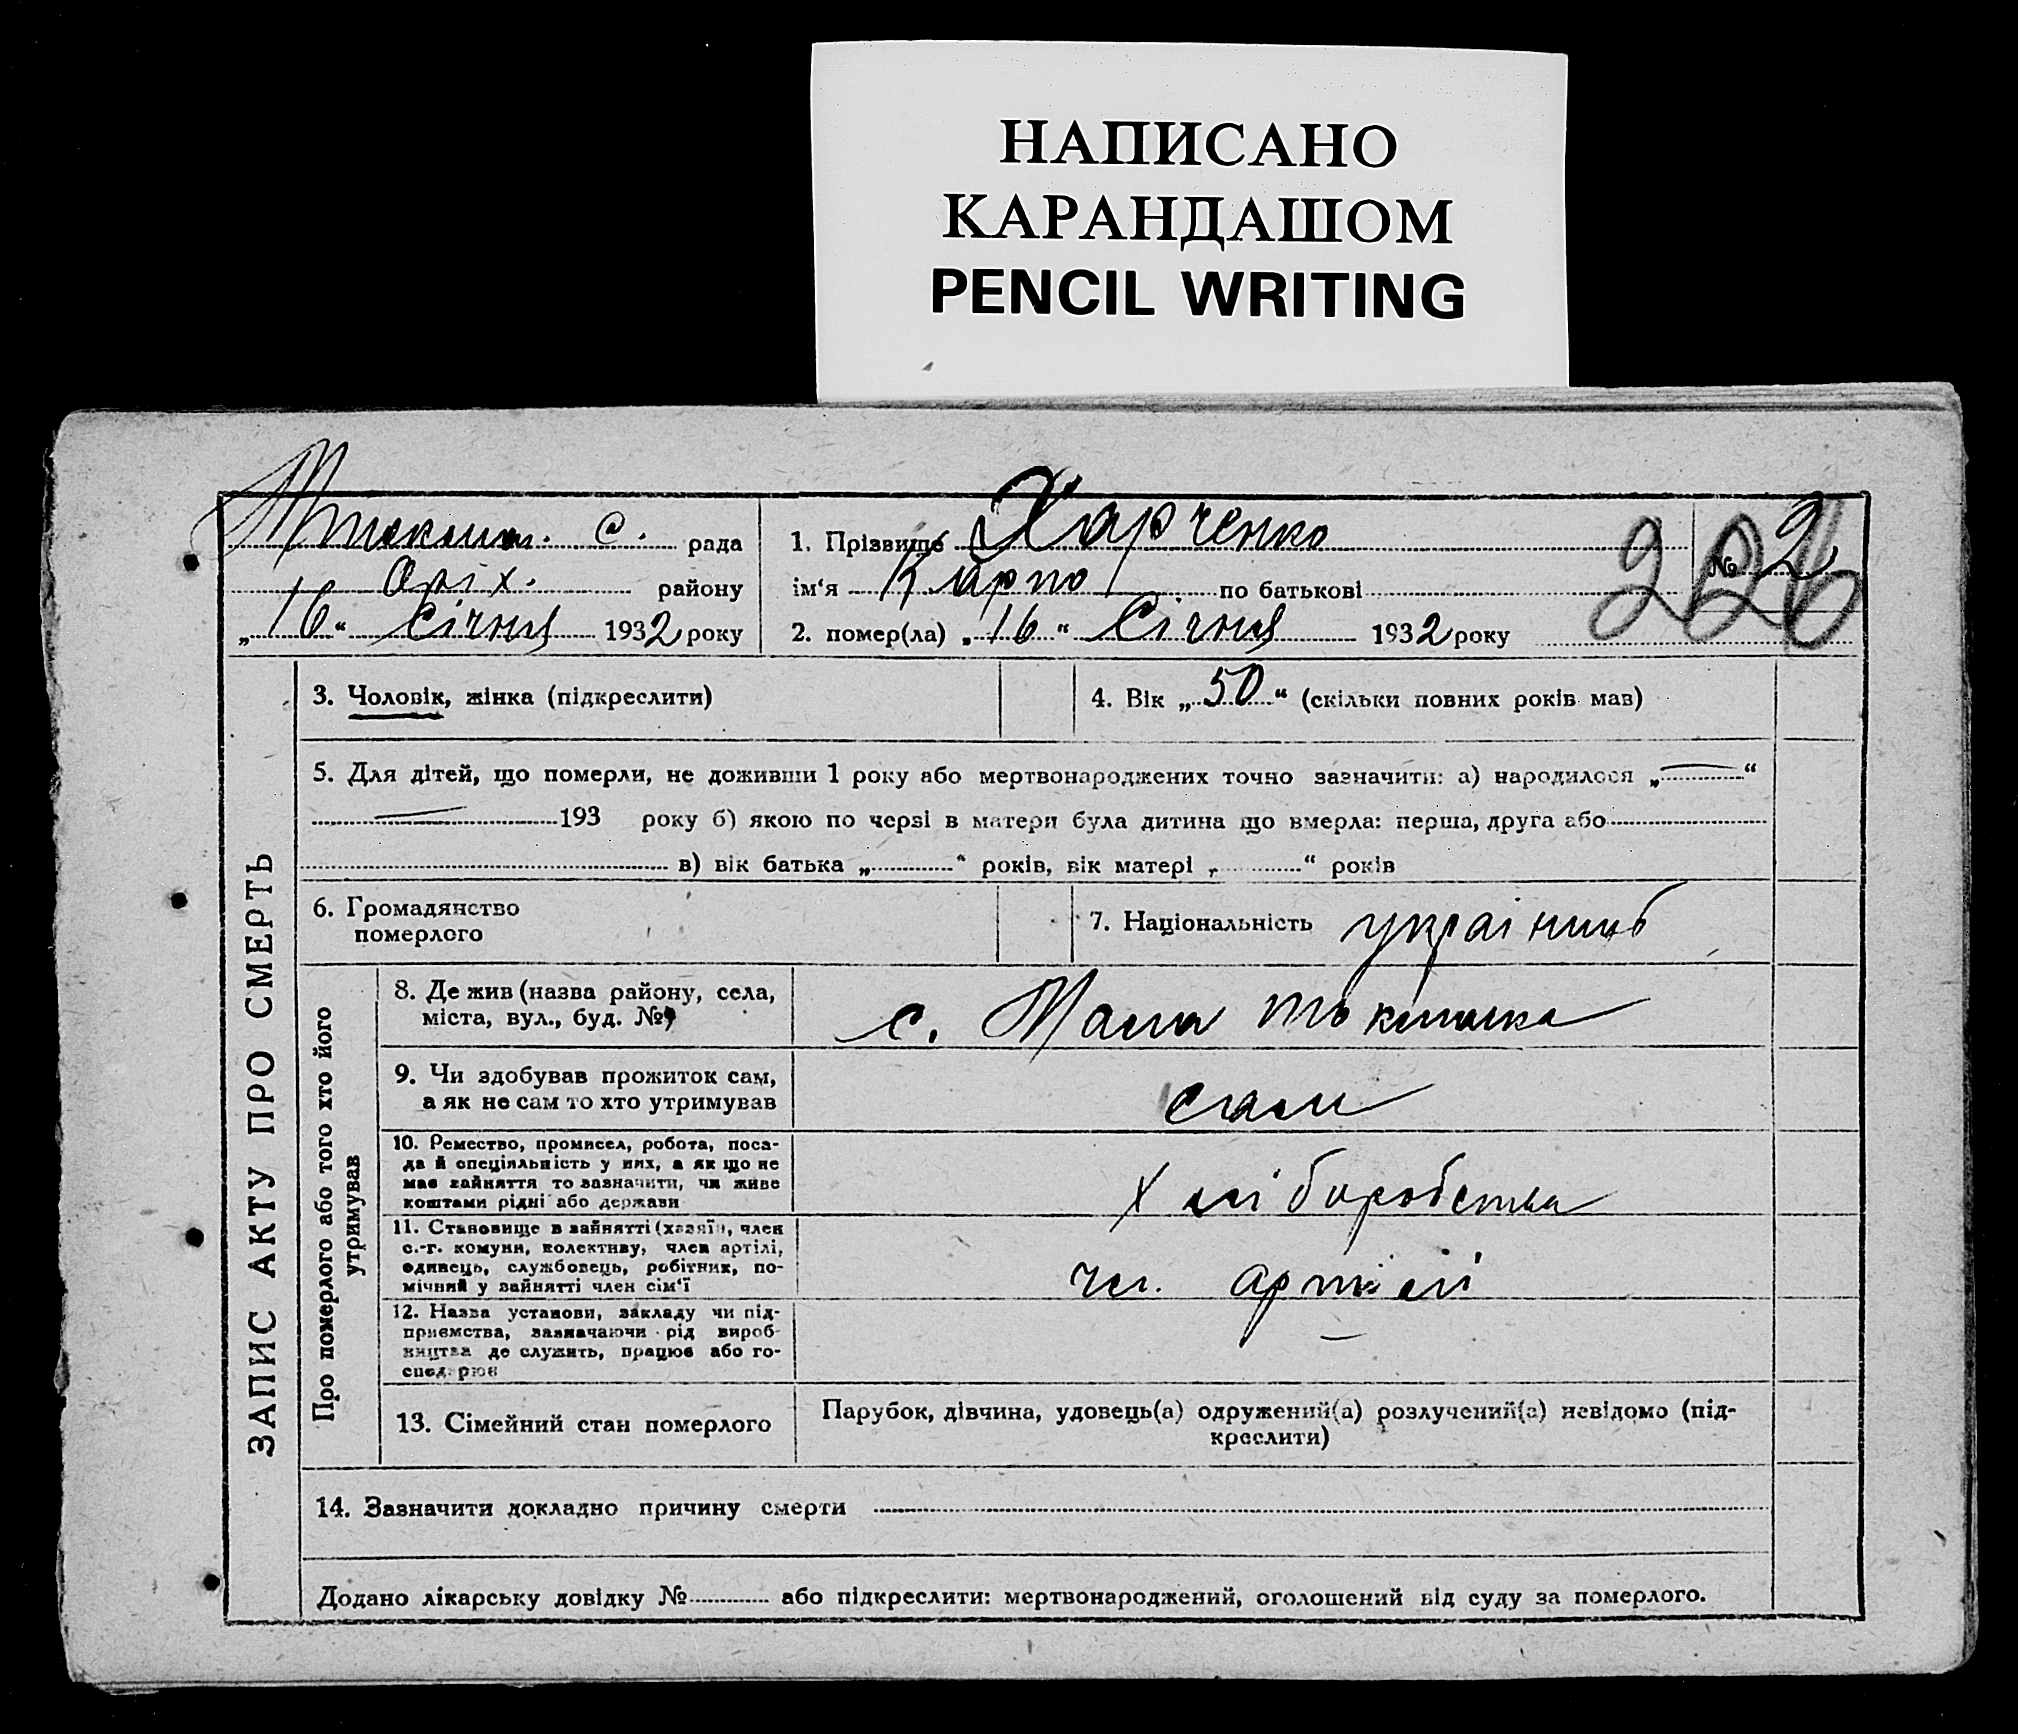 НАПИСАНО
КАРАНДАШОМ
PENCIL WRITING
с. рада
Оріх. району
„16“ Січня 1932 року
1. Прізвище Харченко
№ 2
226
ім‘я Карпо по батькові
2. помер(ла) „16“ Січня 1932 року
ЗАПИС АКТУ ПРО СМЕРТЬ
3. Чоловік, жінка (підкреслити)
4. Вік „50“ (скільки повних років мав)
5. Для дітей, що померли, не доживши 1 року або мертвонароджених точно зазначити: а) народилося „—“
— 193 року б) якою по черзі в матери була дитина що вмерла: перша, друга або
в) вік батька „ “ років, вік матері „ “ років
6. Громадянство
померлого
7. Національність україньць
Про померлого або того хто його
утримував
8. Де жив (назва району, села,
міста, вул., буд. №)
с. Мала Токмачка
9. Чи здобував прожиток сам,
а як не сам то хто утримував
сам
10. Ремество, промисел, робота, поса-
да й спеціяльність у них, а як що не
має зайняття то зазначити, чи живе
коштами рідні або держави
Хліборобства
11. Становище в зайнятті (хазяїн, член
с.-г. комуни, колективу, член артілі,
одинець, службовець, робітник, по-
мічний у зайнятті член сім‘ї
чл. артілі
12. Назва установи, закладу чи під-
приємства, зазначаючи рід вироб-
ництва де служить, працює або го-
сподарює
—
13. Сімейний стан померлого
Парубок, дівчина, удовець(а) одружений(а) розлучений(а) невідомо (під-
креслити)
14. Зазначити докладно причину смерти
Додано лікарську довідку № або підкреслити: мертвонароджений, оголошений від суду за померлого.